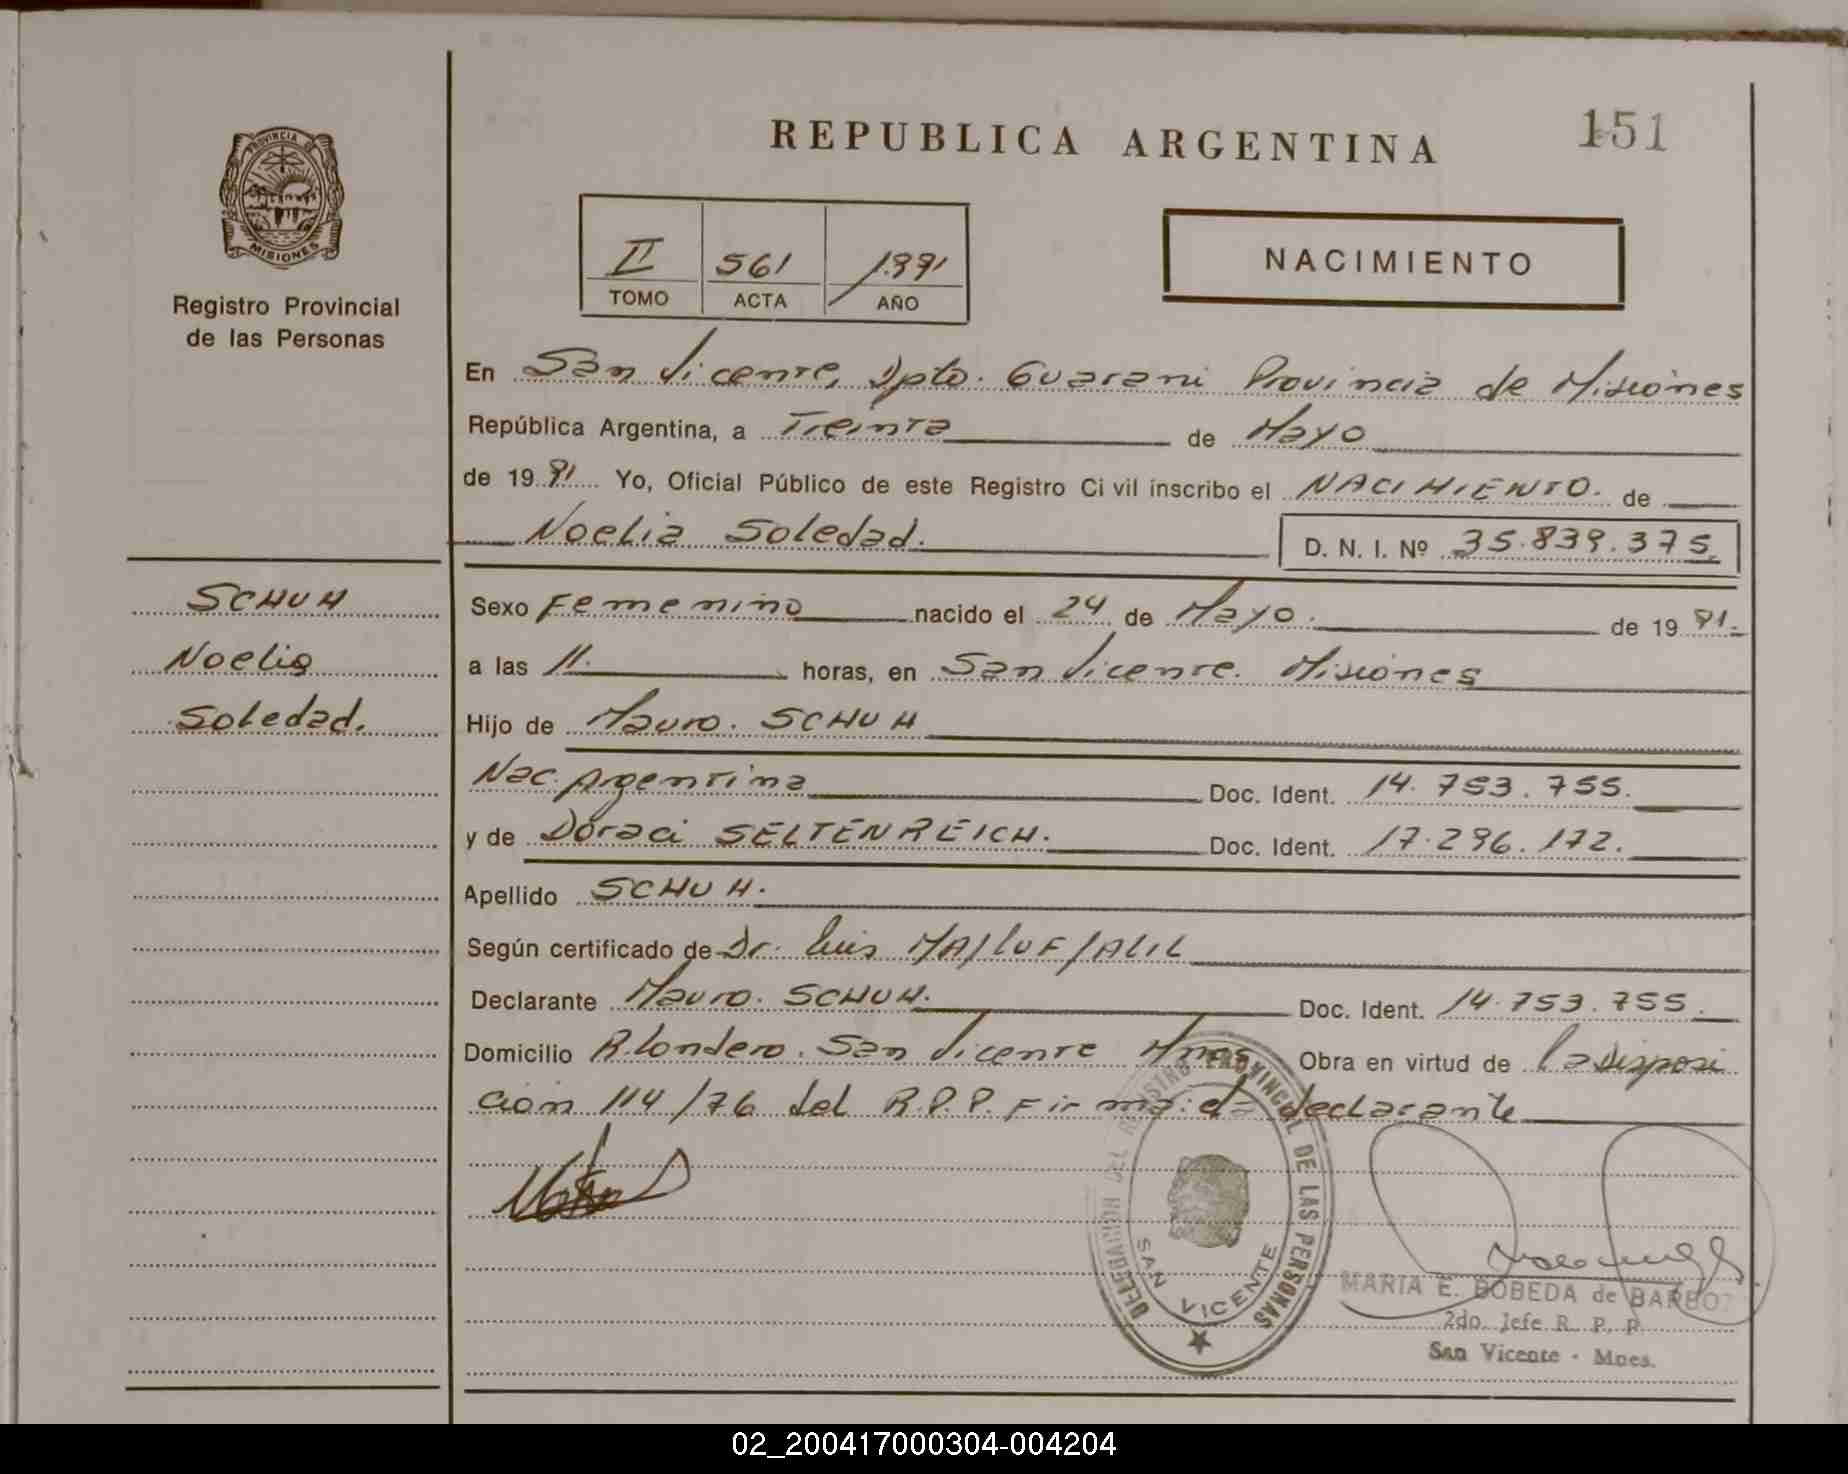 REPUBLICA ARGENTINA
151
PROVINCIA DE
MISIONES
Registro Provincial
de las Personas
II 561 1991
TOMO ACTA AÑO
NACIMIENTO
En San Vicente, Dpto. Guarani Provincia de Misiones
República Argentina, a Treinta de Mayo
de 1991 Yo, Oficial Público de este Registro Ci vil inscribo el NACIMIENTO. de
Noelia Soledad.
D. N. I. Nº 35.839.375
SCHUH
Noelia
Soledad.
Sexo Femenino nacido el 24 de Mayo. de 1991.
a las 11. horas, en San Vicente. Misiones
Hijo de Mauro. SCHUH
Nac. Argentina Doc. Ident. 14.753.755.
y de Doraci SELTENREICH. Doc. Ident. 17.296.172.
Apellido SCHUH.
Según certificado de Dr. Luis
Declarante Mauro. SCHUH. Doc. Ident. 14.753.755.
Domicilio R. Londero. San Vicente Mnes Obra en virtud de la disposi
ción 114/76 del R.P.P. Firma: el declarante
DELEGACION DEL REGISTRO PROVINCIAL DE LAS PERSONAS
SAN VICENTE
MARIA E. BOBEDA de BARBOZ
2do. Jefe R. P. P.
San Vicente - Mnes.
02_200417000304-004204